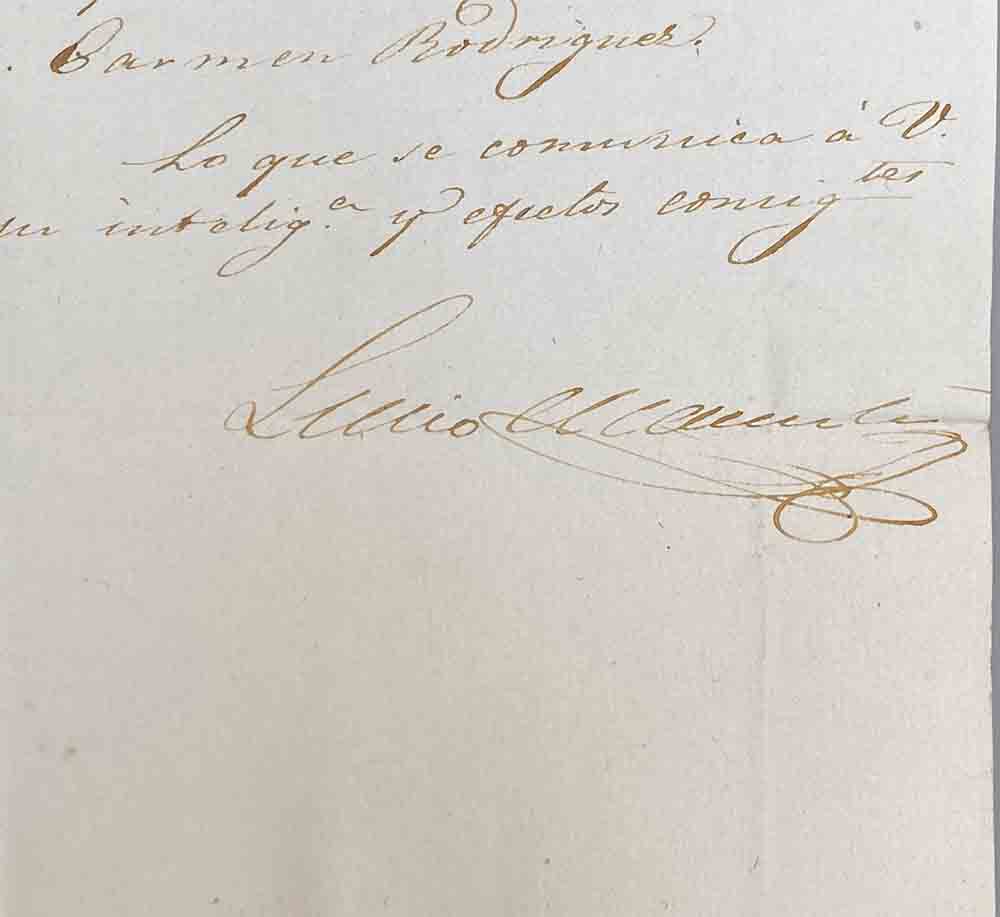 . Carmen Rodriguez.
Lo que se comunica á V.
su intelig.ª y efectos consig.tes